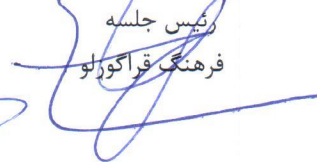 رئیس جلسه
فرهنگ قراگورلو